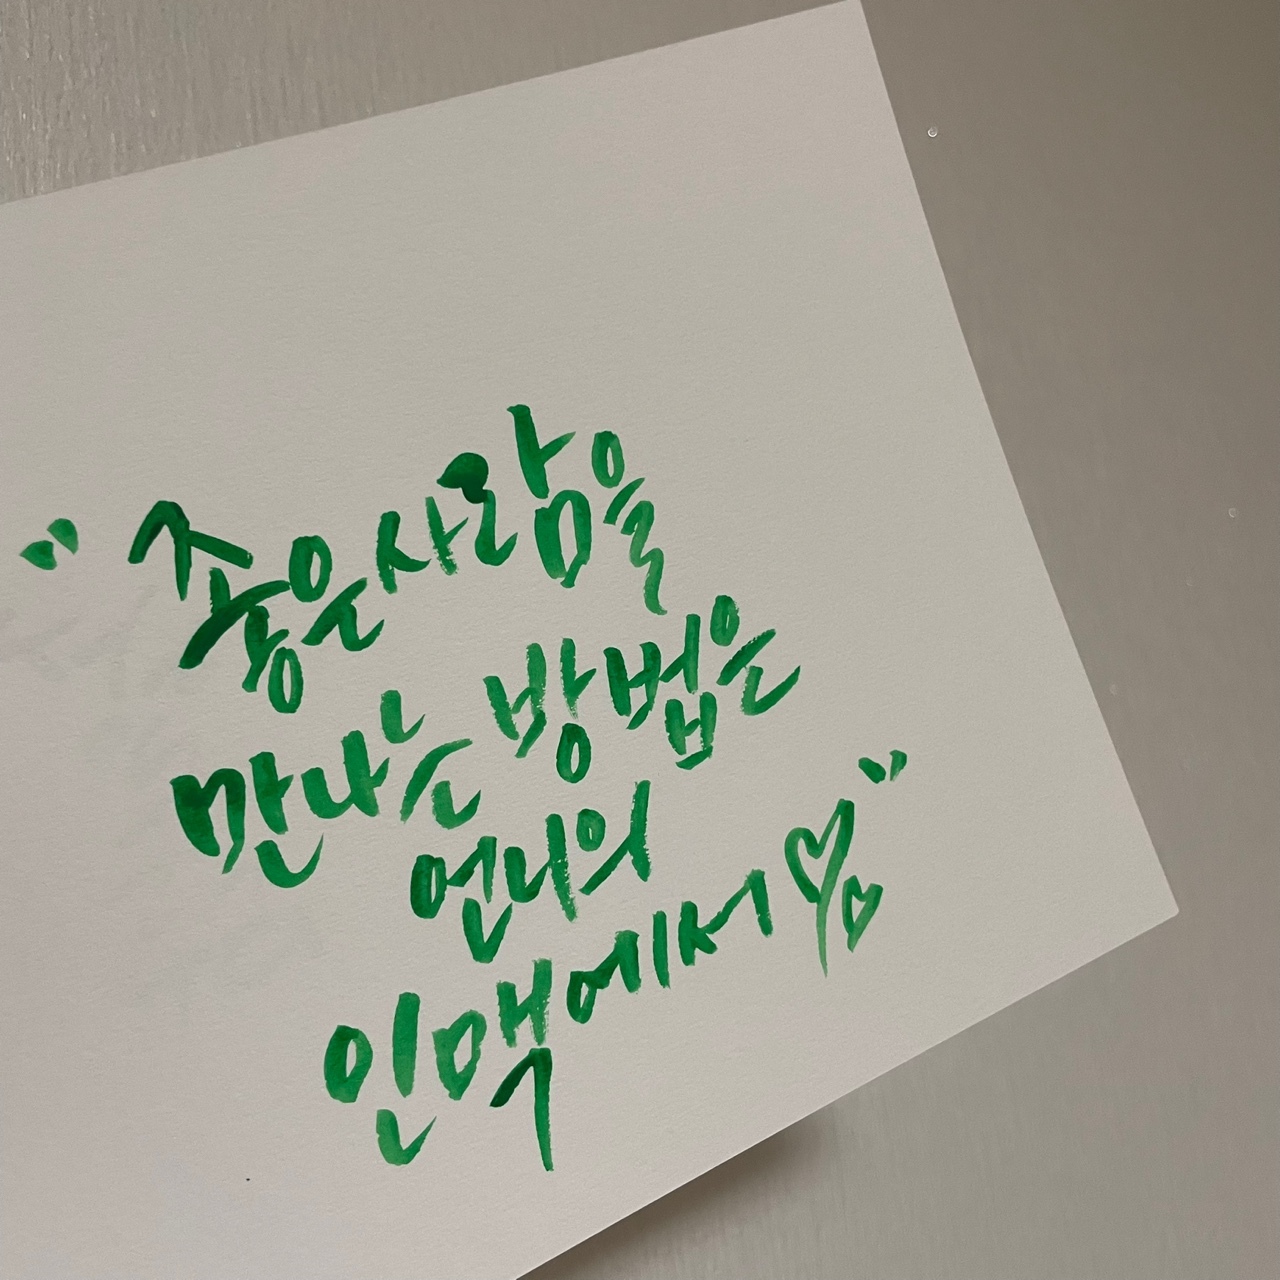 "좋은 사람을
만나는 방법은
언니의
인맥에서♡♡"